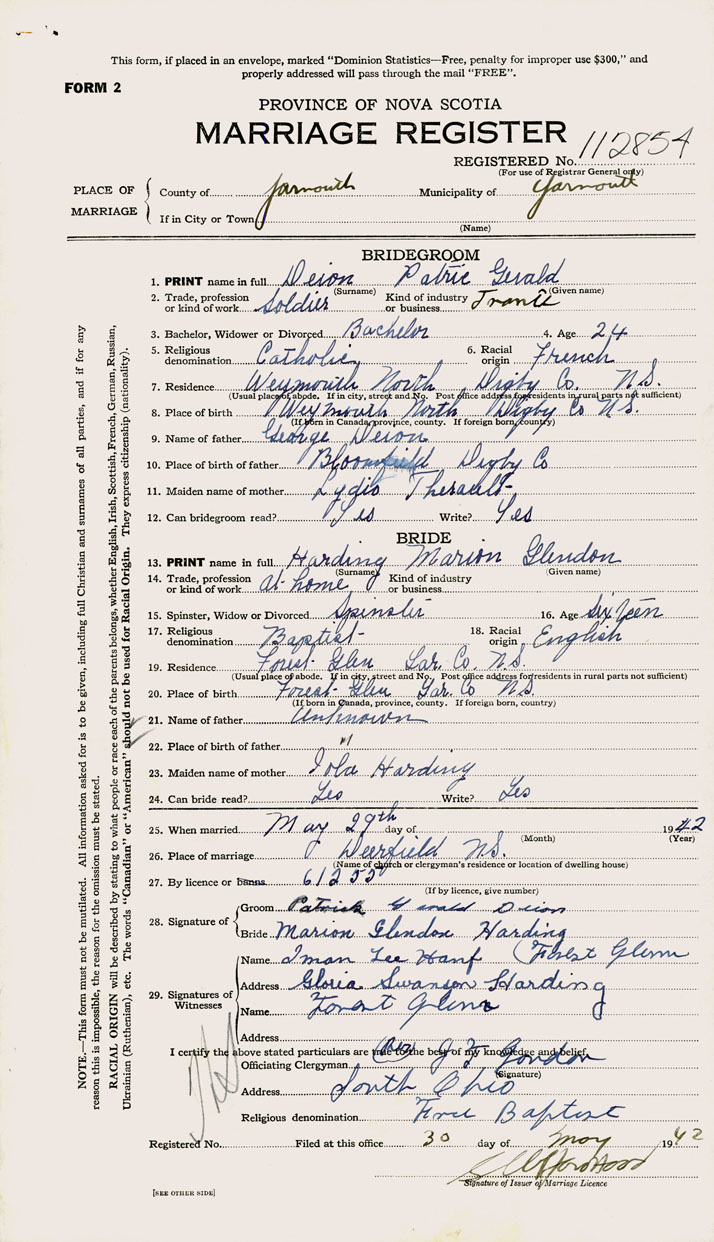 This form, if placed in an envelope, marked "Dominion Statistics—Free, penalty for improper use $300," and
properly addressed will pass through the mail "FREE".
FORM 2
PROVINCE OF NOVA SCOTIA
MARRIAGE REGISTER
REGISTERED No. 112854
(For use of Registrar General only)
PLACE OF MARRIAGE
County of Yarmouth Municipality of Yarmouth
If in City or Town
(Name)
BRIDEGROOM
1. PRINT name in full Deion Patric Gerald
(Surname) (Given name)
2. Trade, profession or kind of work Soldier Kind of industry or business
3. Bachelor, Widower or Divorced Bachelor 4. Age 24
5. Religious denomination Catholic 6. Racial origin French
7. Residence Weymouth North Digby Co. N.S.
(Usual place of abode. If in city, street and No. Post office address for residents in rural parts not sufficient)
8. Place of birth Weymouth North Digby Co N.S.
(If born in Canada, province, county. If foreign born, country)
9. Name of father George Deion
10. Place of birth of father Bloomfield Digby Co
11. Maiden name of mother Lydia
12. Can bridegroom read? Yes Write? Yes
BRIDE
13. PRINT name in full Harding Marion Glendon
(Surname) (Given name)
14. Trade, profession or kind of work at home Kind of industry or business
15. Spinster, Widow or Divorced Spinster 16. Age sixteen
17. Religious denomination Baptist 18. Racial origin English
19. Residence Forest Glen Yar. Co. N.S.
(Usual place of abode. If in city, street and No. Post office address for residents in rural parts not sufficient)
20. Place of birth Forest Glen Yar. Co N.S.
(If born in Canada, province, county. If foreign born, country)
21. Name of father Unknown
22. Place of birth of father "
23. Maiden name of mother Iola Harding
24. Can bride read? Yes Write? Yes
25. When married May 29th day of 1942
(Month) (Year)
26. Place of marriage Deerfield N.S.
(Name of church or clergyman's residence or location of dwelling house)
27. By licence or banns 61255
(If by licence, give number)
28. Signature of
Groom Patrick Gerald Deion
Bride Marion Glendon Harding
29. Signatures of Witnesses
Name Lee (Forest Glenn
Address Gloria Swanson Harding
Name Forest Glenn
Address
I certify the above stated particulars are true to the best of my knowledge and belief,
Officiating Clergyman Gordon
(Signature)
Address South Ohio
Religious denomination Free Baptist
Registered No. Filed at this office 30 day of May 1942
Signature of Issuer of Marriage Licence
[SEE OTHER SIDE]
NOTE.—This form must not be mutilated. All information asked for is to be given, including full Christian and surnames of all parties, and if for any
reason this is impossible, the reason for the omission must be stated.
RACIAL ORIGIN will be described by stating to what people or race each of the parents belongs, whether English, Irish, Scottish, French, German, Russian,
Ukrainian (Ruthenian), etc. The words "Canadian" or "American" should not be used for Racial Origin. They express citizenship (nationality).